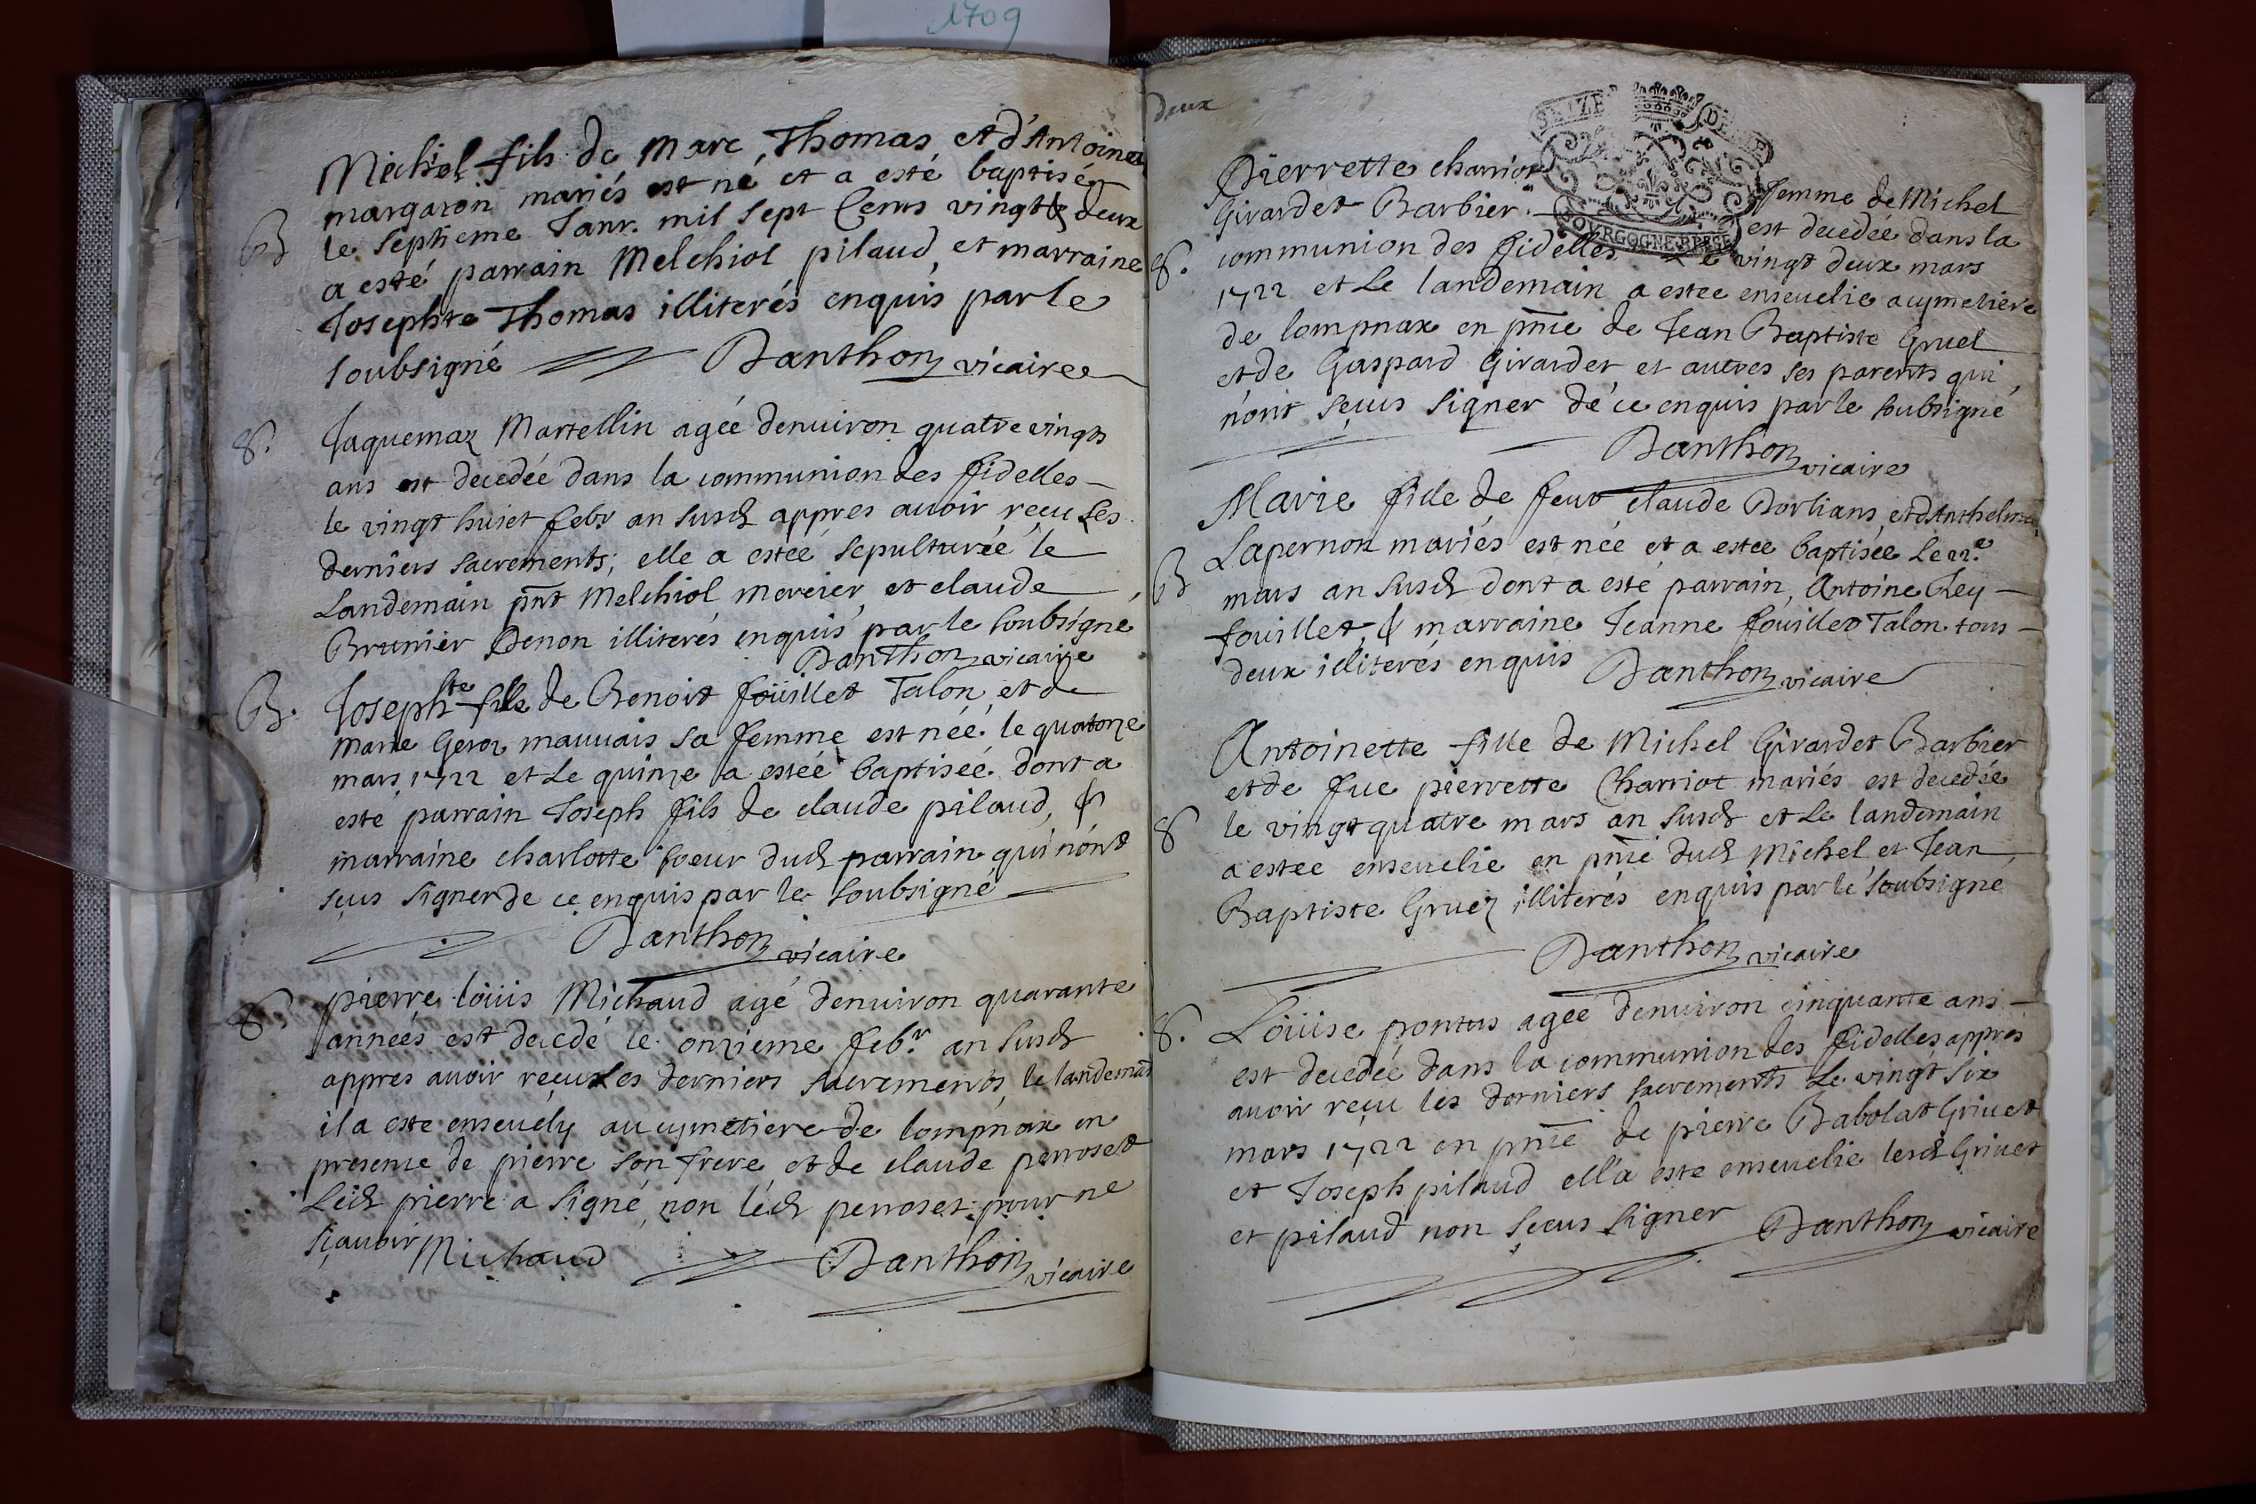 1709
Michel fils de Marc Thomas et d'Antoine
margaron mariés est né et a esté baptisé
B le septieme Janr. mil sept Cens vingt deux
a esté parrain Melchiol pilaud, et marraine
Josephte Thomas illiterés enquis par le
soubsigné Danthon vicaire
S. Jaquemaz Martellin agéé denuiron quatre vingts
ans est decedéé dans la communion des ffidelles
le vingt huict febr an susd appres auoir reçu Les
derniers sacrements; elle a esteé sepulturéé le
Landemain pnt Melchiol mercier, et claude
Brunier Denon illiterés enquis par le soubsigné
Danthon vicaire
B. Josephte fille de Benoit foüillet Talon, et de
marie Geroz mauuais sa femme est néé le quatorze
mars 1722 et Le quinze a esteé baptiséé dont a
este parrain Joseph fils de claude pilaud, &
marraine charlotte soeur dud parrain qui n'ont
sçus signer de ce enquis par le soubsigné
Danthon vicaire
S. pierre loüis Michaud agé denuiron quarante
années est decedé le onzieme febr. an susd
appres auoir reçu Les derniers sacrements, le landemain
il a este enseuely au cymetiere de lompnax en
presence de pierre son frere et de claude perroset
Led pierre a signé, non led perroset pour ne
sçauoir Michaud Danthon vicaire
deux
SEIZE DE
BOURGOGNE BRESSE
Pierrette charriot femme de Michel
Girardet Barbier est decedéé dans la
S. communion des ffidelles Le vingt deux mars
1722 et Le landemain a estee enseuelie a cymetiere
de lompnax en pnce de Jean Baptiste Gruel
et de Gaspard Girardet et autres ses parents qui
n'ont sçeus signer de ce enquis par le soubsigné
Danthon vicaire
Marie fille de feut claude Dorlians et d'Anthelma
Lapernon mariés est néé et a estee baptisée Le 22e
B mars an susd dont a esté parrain Antoine Rey
fouillet, & marraine Jeanne fouillet Talon tous
deux illiterés enquis Danthon vicaire
Antoinette fille de Michel Girardet Barbier
et de fue pierrette Charriot mariés est decedée
S le vingt quatre mars an susd et Le landemain
a estee enseuelie en pnce dud Michel et Jean
Baptiste Gruel illiterés enquis par le soubsigne
Danthon vicaire
S. Loüise pontus ageé denuiron cinquante ans
est decedée dans la communion des ffidelles appres
auoir reçu les derniers sacrements Le vingt six
mars 1722 en pnce de pierre Babolat Griuet
et Joseph pilaud ell'a este enseuelie lesd Griuet
et pilaud non sçeus signer Danthon vicaire